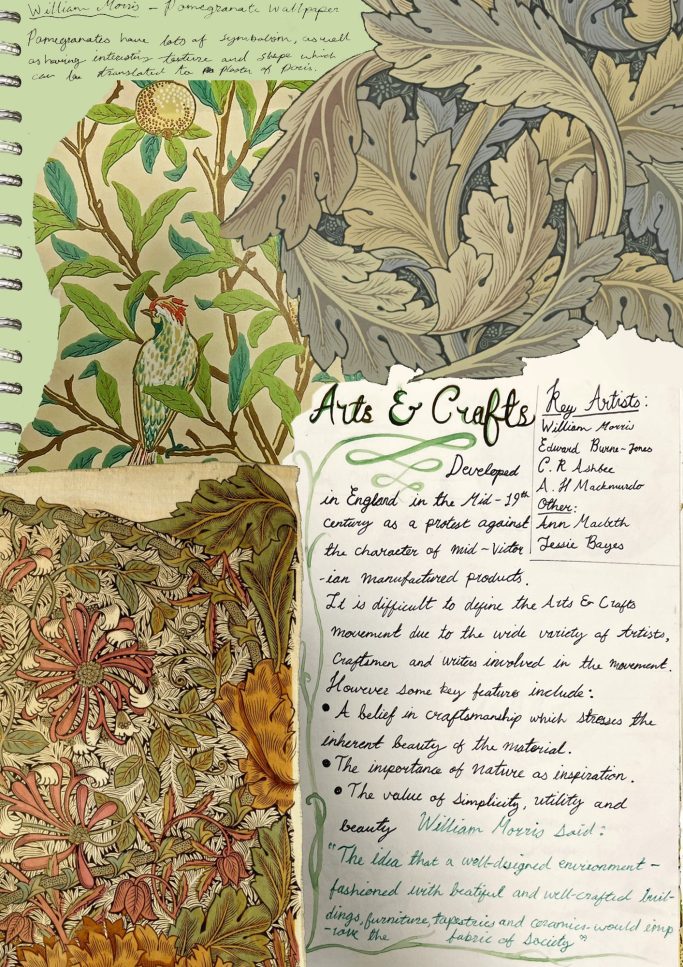 William Morris - Pomegranate Wallpaper
Pomegranates have lots of symbolism, as well
as having interesting texture and shape which
can be translated to plaster of paris.
Arts & Crafts
Key Artists:
William Morris
Edward Burne-Jones
C. R Ashbee
A. H Mackmurdo
Other:
Ann Macbeth
Jessie Bayes
Developed
in England in the Mid-19th
century as a protest against
the character of mid-Victor
-ian manufactured products.
It is difficult to define the Arts & Crafts
movement due to the wide variety of Artists,
Craftsmen and writers involved in the movement.
However some key features include:
• A belief in craftsmanship which stresses the
inherent beauty of the material.
• The importance of Nature as inspiration.
• The value of simplicity, utility and
beauty William Morris said:
"The idea that a well-designed environment-
fashioned with beatiful and well-crafted buil-
dings, furniture, tapestries and ceramics-would imp
-rove the fabric of Society"